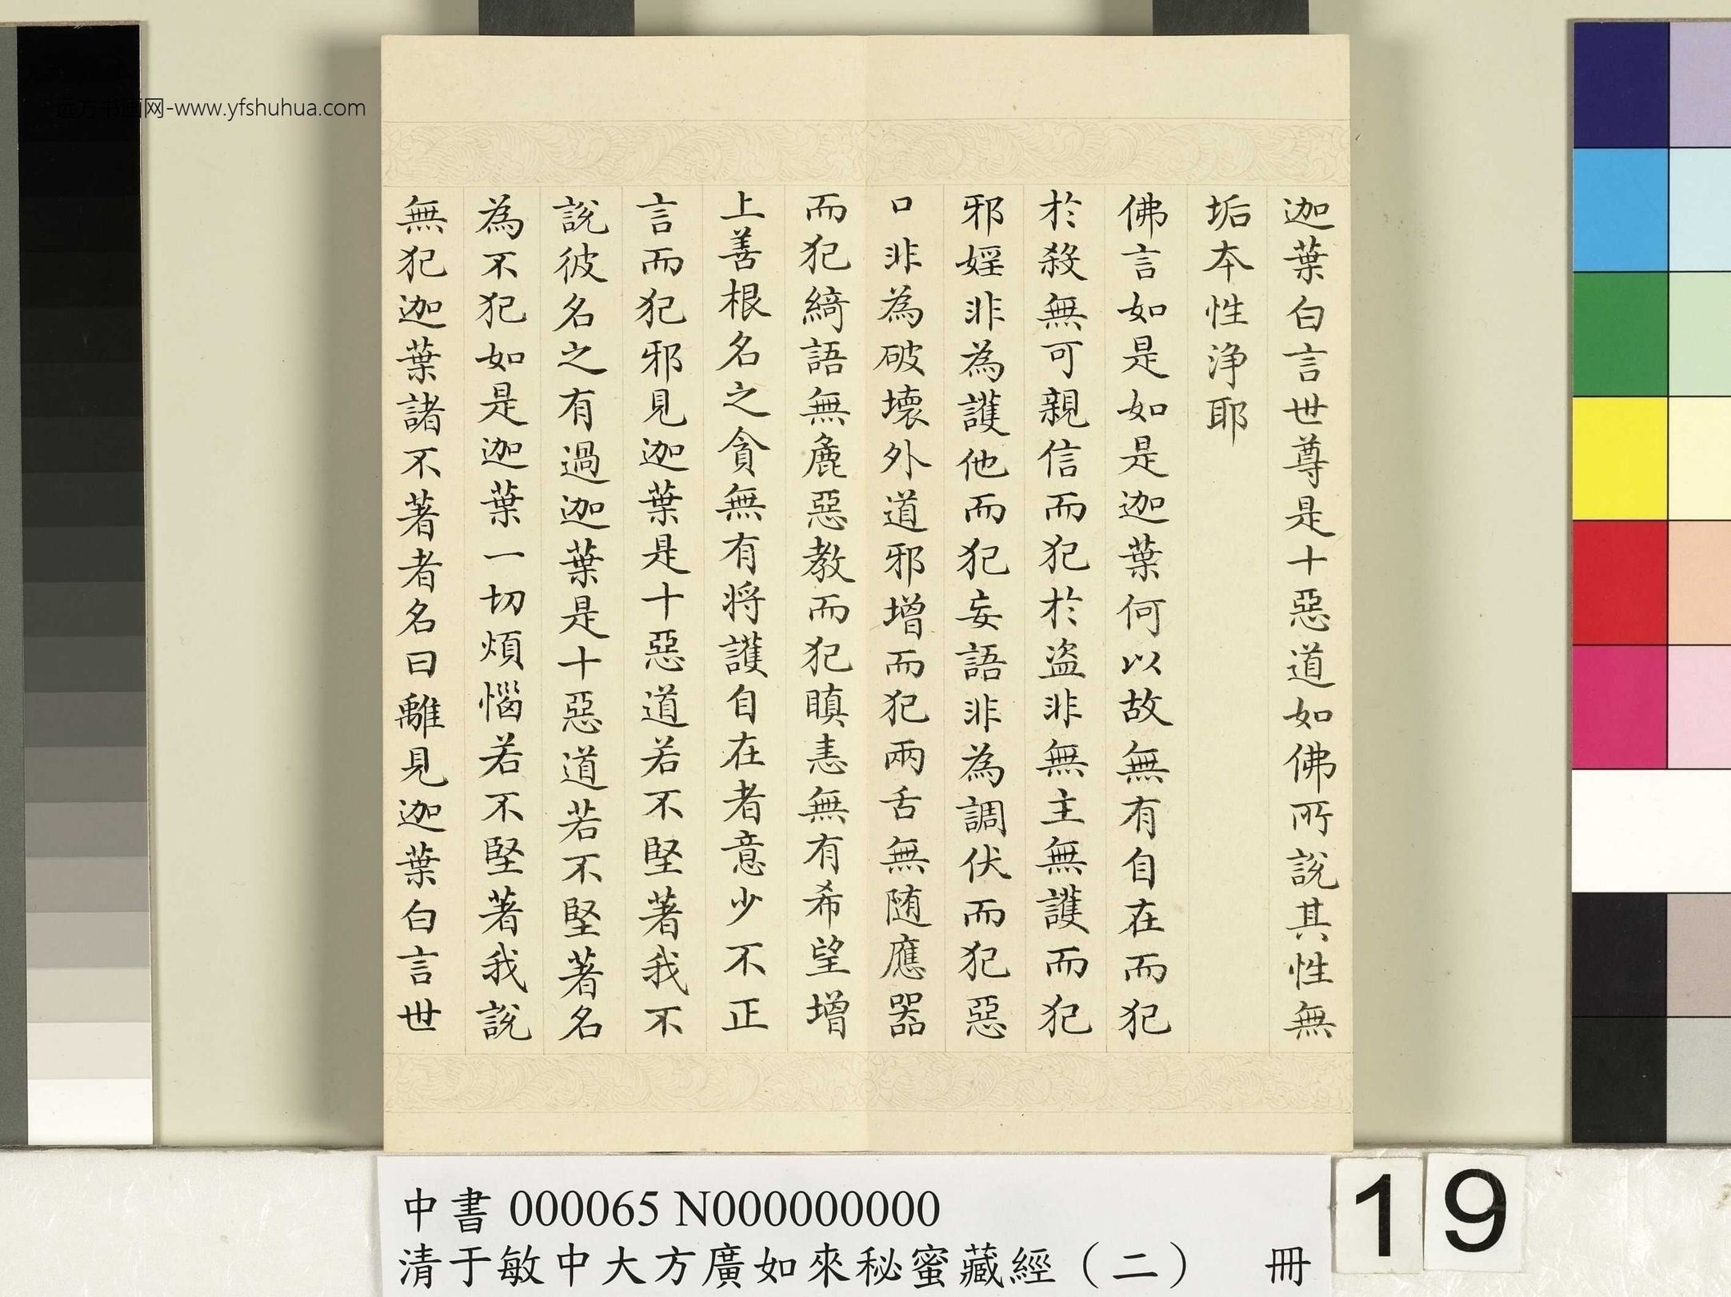 远方书画网-www.yfshuhua.com
迦葉白言世尊是十惡道如佛所說其性無
垢本性淨耶
佛言如是如是迦葉何以故無有自在而犯
於殺無可親信而犯於盜非無主無護而犯
邪婬非為護他而犯妄語非為調伏而犯惡
口非為破壞外道邪增而犯兩舌無随應器
而犯綺語無麁惡教而犯瞋恚無有希望增
上善根名之貪無有将護自在者意少不正
言而犯邪見迦葉是十惡道若不堅著我不
說彼名之有過迦葉是十惡道若不堅著名
為不犯如是迦葉一切煩惱若不堅著我說
無犯迦葉諸不著者名曰離見迦葉白言世
中書 000065 N000000000
清于敏中大方廣如來秘蜜藏經（二） 冊
19